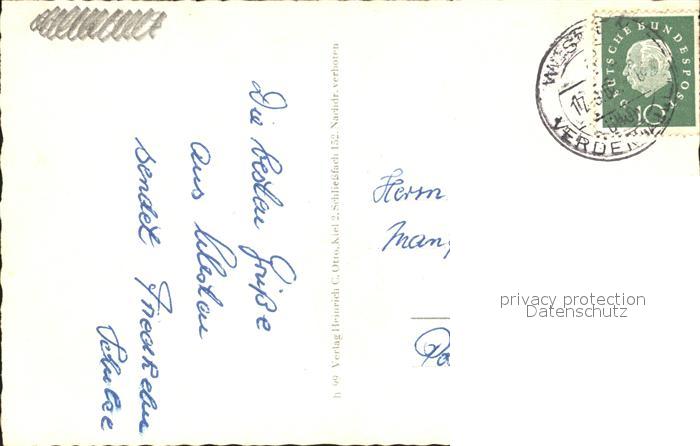 Die besten Grüße
aus Westen
sendet
Schulze
h 99 Verlag Heinrich C. Otto, Kiel 2, Schließfach 152. Nachdr. verboten
Herrn
DEUTSCHE BUNDESPOST
10
WESTEN
VERDEN
privacy protection
Datenschutz